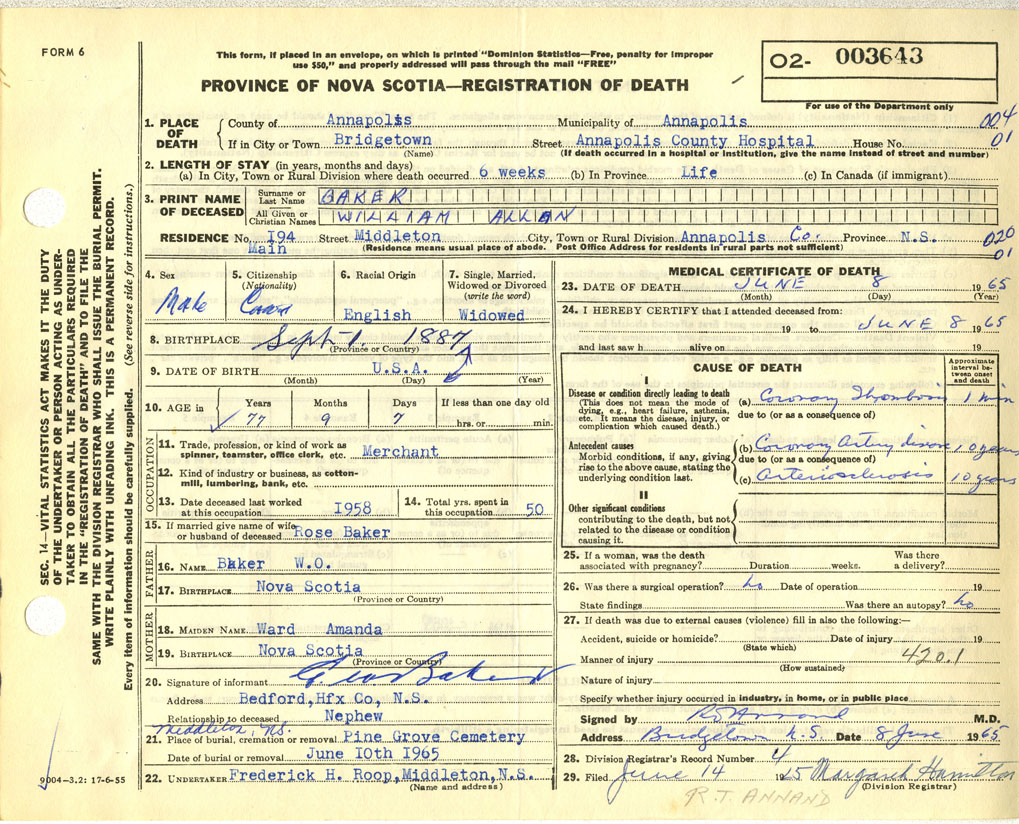 FORM 6
This form, if placed in an envelope, on which is printed "Dominion Statistics—Free, penalty for improper
use $50," and properly addressed will pass through the mail "FREE"
PROVINCE OF NOVA SCOTIA—REGISTRATION OF DEATH
02- 003643
For use of the Department only
1. PLACE OF DEATH County of Annapolis Municipality of Annapolis 004
If in City or Town Bridgetown Street Annapolis County Hospital House No. 01
(Name) (If death occurred in a hospital or institution, give the name instead of street and number)
2. LENGTH OF STAY (in years, months and days)
(a) In City, Town or Rural Division where death occurred 6 weeks (b) In Province Life (c) In Canada (if immigrant)
3. PRINT NAME OF DECEASED Surname or Last Name BAKER
All Given or Christian Names WILLIAM ALLAN
RESIDENCE No. I94 Street Middleton City, Town or Rural Division Annapolis Co. Province N.S. 020
Main (Residence means usual place of abode. Post Office Address for residents in rural parts not sufficient) 01
4. Sex Male
5. Citizenship (Nationality)
6. Racial Origin English
7. Single, Married, Widowed or Divorced (write the word) Widowed
8. BIRTHPLACE Sept 1. 1887
(Province or Country)
9. DATE OF BIRTH U.S.A.
(Month) (Day) (Year)
10. AGE in Years Months Days If less than one day old
77 9 7 hrs. or min.
OCCUPATION
11. Trade, profession, or kind of work as spinner, teamster, office clerk, etc. Merchant
12. Kind of industry or business, as cotton-mill, lumbering, bank, etc.
13. Date deceased last worked at this occupation I958
14. Total yrs. spent in this occupation 50
15. If married give name of wife or husband of deceased Rose Baker
FATHER
16. NAME Baker W.O.
17. BIRTHPLACE Nova Scotia
(Province or Country)
MOTHER
18. MAIDEN NAME Ward Amanda
19. BIRTHPLACE Nova Scotia
(Province or Country)
20. Signature of informant Baker
Address Bedford,Hfx Co, N.S.
Relationship to deceased Nephew
Middleton, N.S.
21. Place of burial, cremation or removal Pine Grove Cemetery
Date of burial or removal June IOth I965
22. UNDERTAKER Frederick H. Roop,Middleton,N.S.
(Name and address)
9004-3,2: 17-6-55
MEDICAL CERTIFICATE OF DEATH
23. DATE OF DEATH JUNE 8 1965
(Month) (Day) (Year)
24. I HEREBY CERTIFY that I attended deceased from:
19 to JUNE 8 1965
and last saw h alive on 19
CAUSE OF DEATH
Approximate interval between onset and death
I
Disease or condition directly leading to death
(This does not mean the mode of dying, e.g., heart failure, asthenia, etc. It means the disease, injury, or complication which caused death.)
(a) Coronary Thrombosis 1 min
due to (or as a consequence of)
Antecedent causes
Morbid conditions, if any, giving rise to the above cause, stating the underlying condition last.
(b) Coronary Artery disease 10 years
due to (or as a consequence of)
(c) Arteriosclerosis 10 years
II
Other significant conditions
contributing to the death, but not related to the disease or condition causing it.
25. If a woman, was the death associated with pregnancy? Duration weeks. Was there a delivery?
26. Was there a surgical operation? no Date of operation 19
State findings Was there an autopsy? no
27. If death was due to external causes (violence) fill in also the following:—
Accident, suicide or homicide? Date of injury 19
(State which)
Manner of injury 420.1
(How sustained)
Nature of injury
Specify whether injury occurred in industry, in home, or in public place
Signed by R T Annand M.D.
Address Bridgetown N.S. Date 8 June 1965
28. Division Registrar's Record Number 4
29. Filed June 14 1965 Margaret Hamilton
(Division Registrar)
R.T. ANNAND
SEC. 14—VITAL STATISTICS ACT MAKES IT THE DUTY
OF THE UNDERTAKER OR PERSON ACTING AS UNDER-
TAKER TO OBTAIN ALL THE PARTICULARS REQUIRED
IN THE "REGISTRATION OF DEATH" AND TO FILE THE
SAME WITH THE DIVISION REGISTRAR WHO SHALL ISSUE THE BURIAL PERMIT.
WRITE PLAINLY WITH UNFADING INK. THIS IS A PERMANENT RECORD.
Every item of information should be carefully supplied. (See reverse side for instructions.)